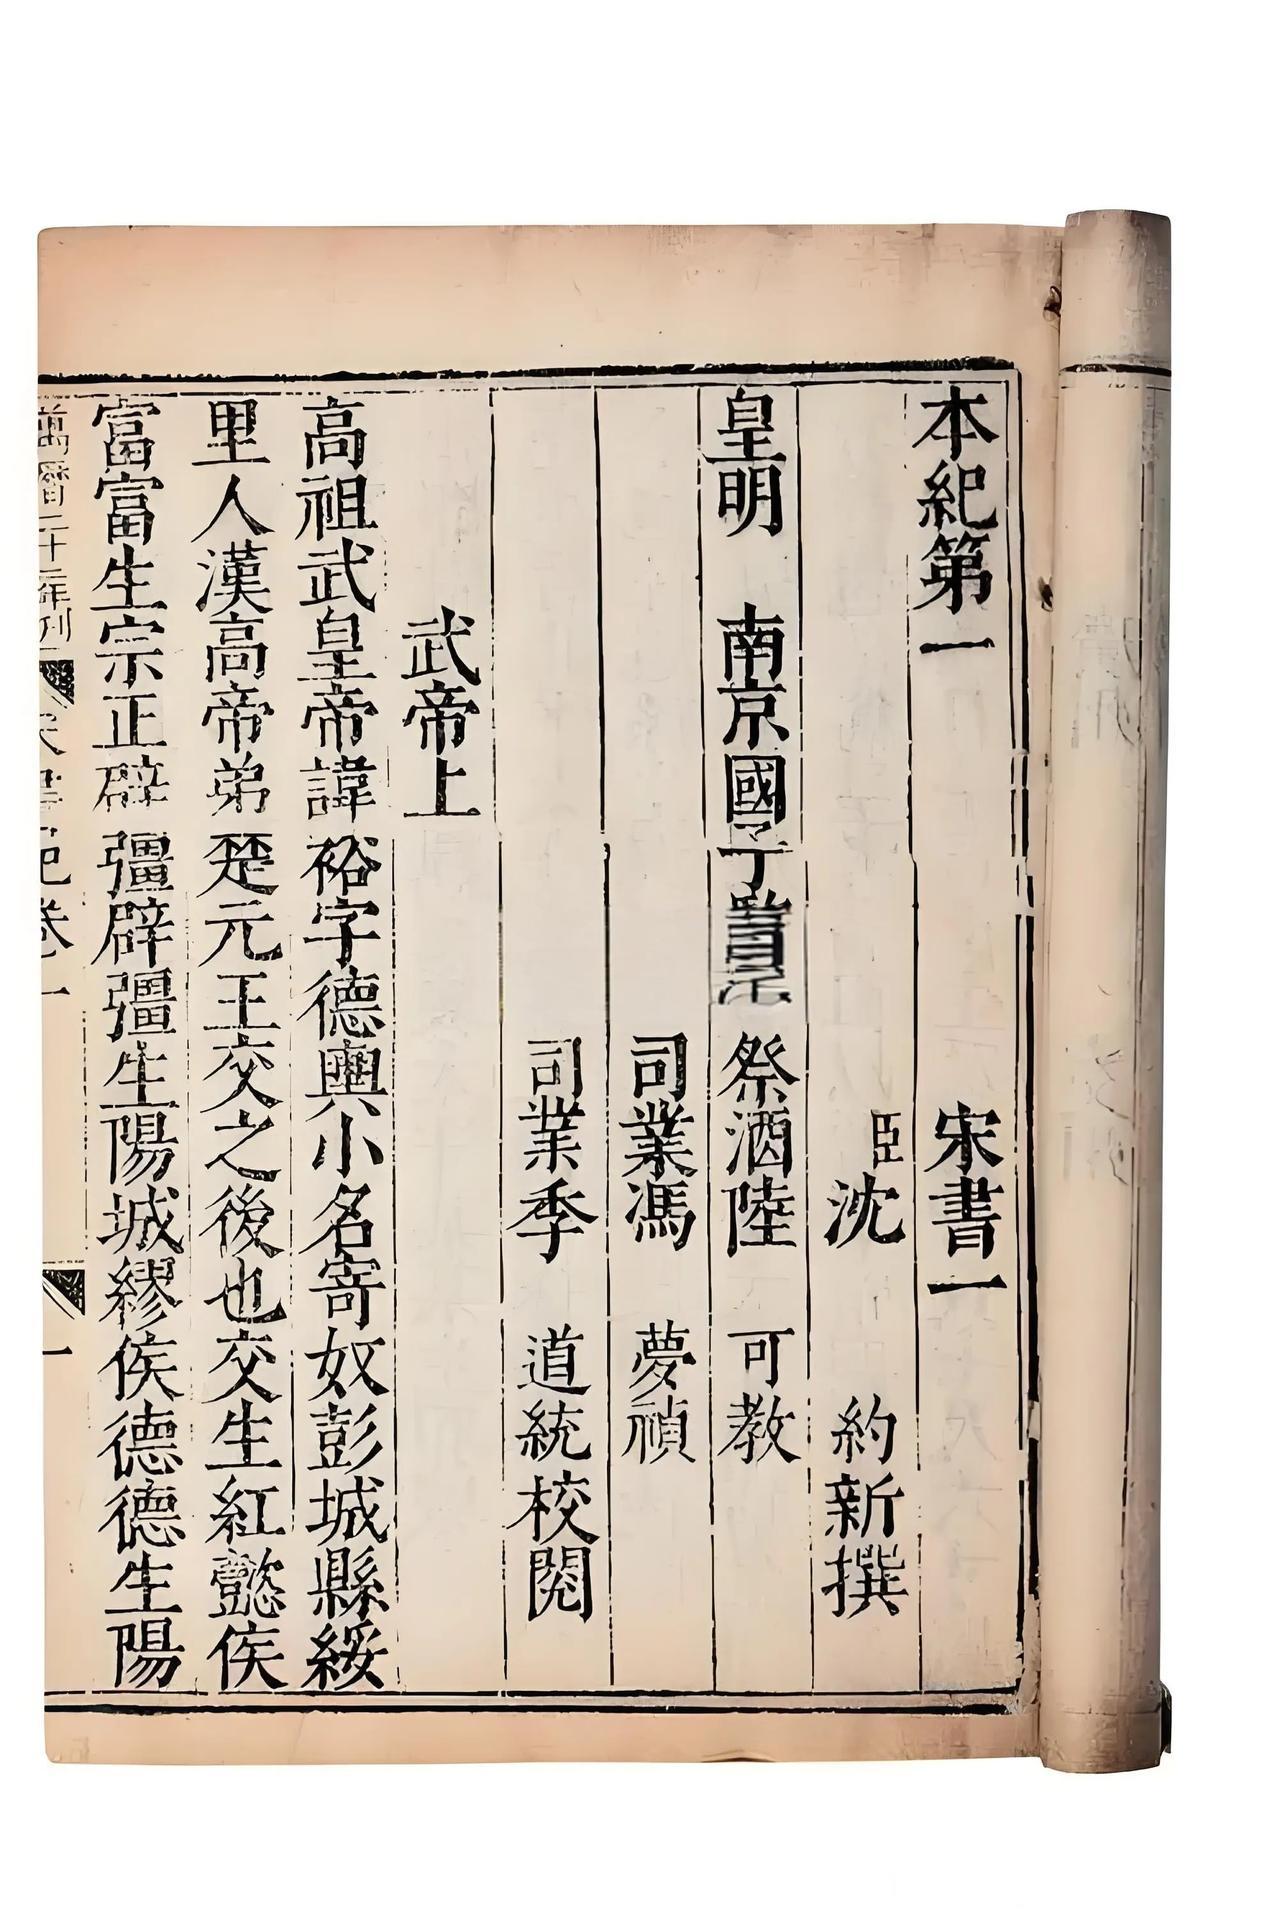 本紀第一 宋書一
臣沈 約新撰
皇明 南京國子 祭酒陸 可教
司業馮 夢禎
司業季 道統校閱
武帝上
高祖武皇帝諱裕字德輿小名寄奴彭城縣綏
里人漢高帝弟楚元王交之後也交生紅懿侯
富富生宗正辟彊辟彊生陽城繆侯德德生陽
萬曆二十二年刊 宋書紀卷一 一